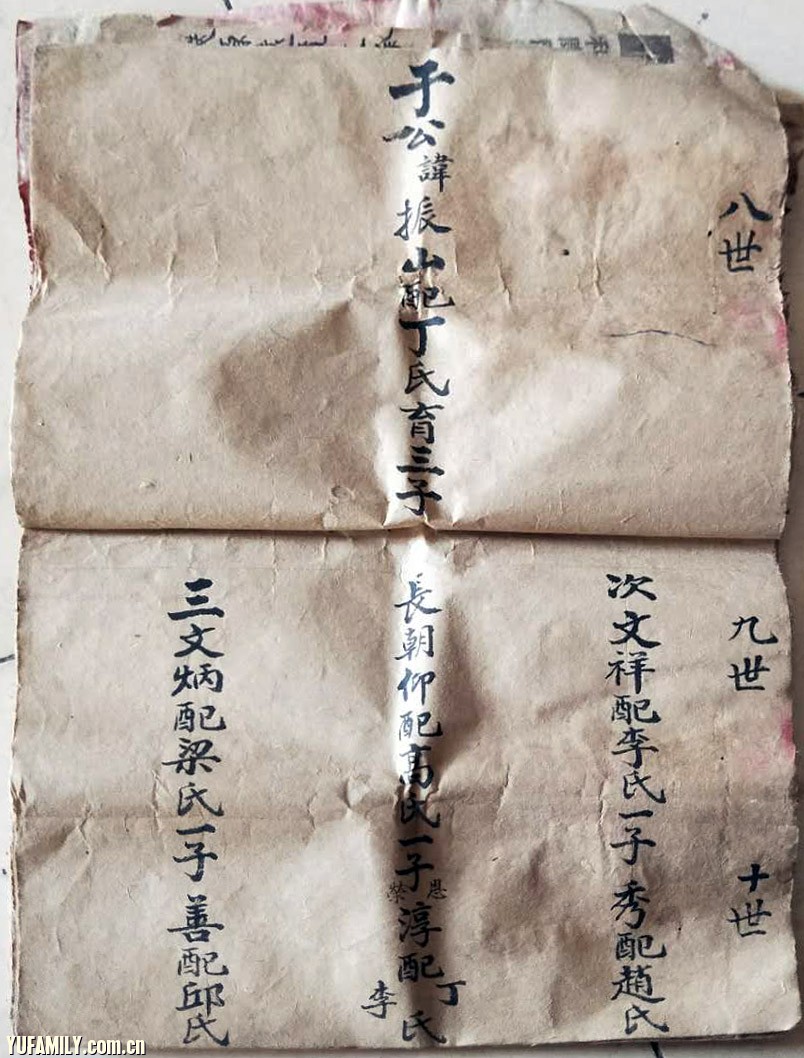 八世
于公諱振山配丁氏育三子
九世
十世
次文祥配李氏一子秀配趙氏
長朝仰配高氏一子淳配丁李氏
恩榮
三文炳配梁氏一子善配邱氏
YUFAMILY.com.cn